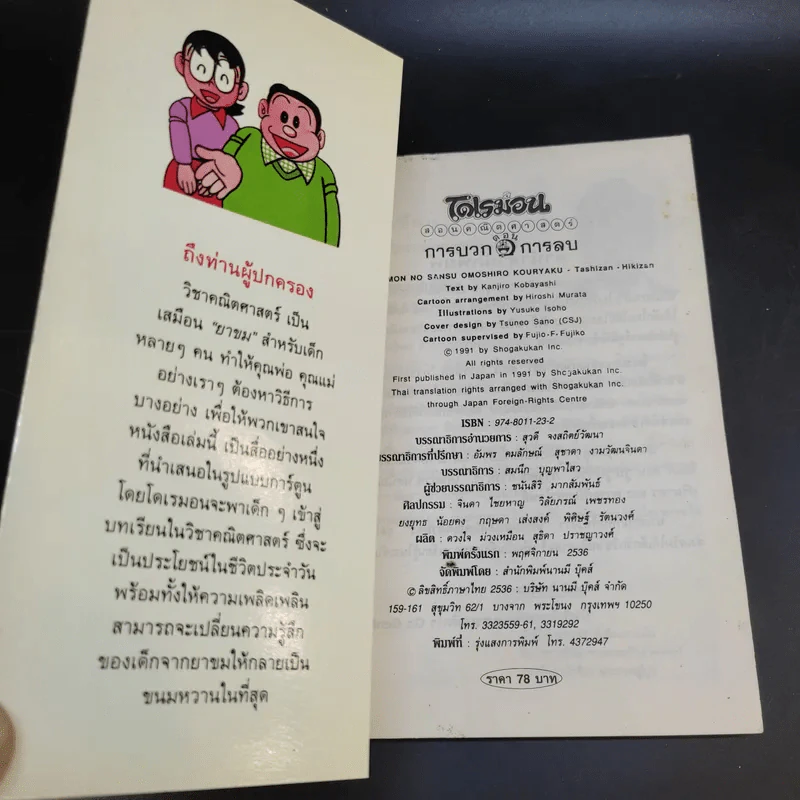 ถึงท่านผู้ปกครอง
วิชาคณิตศาสตร์ เป็น
เสมือน "ยาขม" สำหรับเด็ก
หลายๆ คน ทำให้คุณพ่อ คุณแม่
อย่างเราๆ ต้องหาวิธีการ
บางอย่าง เพื่อให้พวกเขาสนใจ
หนังสือเล่มนี้ เป็นสื่ออย่างหนึ่ง
ที่นำเสนอในรูปแบบการ์ตูน
โดยโดเรมอนจะพาเด็ก ๆ เข้าสู่
บทเรียนในวิชาคณิตศาสตร์ ซึ่งจะ
เป็นประโยชน์ในชีวิตประจำวัน
พร้อมทั้งให้ความเพลิดเพลิน
สามารถจะเปลี่ยนความรู้สึก
ของเด็กจากยาขมให้กลายเป็น
ขนมหวานในที่สุด
โดเรม่อน
สอนคณิตศาสตร์
ตอน
การบวก การลบ
MON NO SANSU OMOSHIRO KOURYAKU - Tashizan - Hikizan
Text by Kanjiro Kobayashi
Cartoon arrangement by Hiroshi Murata
Illustrations by Yusuke Isoho
Cover design by Tsuneo Sano (CSJ)
Cartoon supervised by Fujio-F-Fujiko
© 1991 by Shogakukan Inc.
All rights reserved
First published in Japan in 1991 by Shogakukan Inc.
Thai translation rights arranged with Shogakukan Inc.
through Japan Foreign-Rights Centre
ISBN : 974-8011-23-2
บรรณาธิการอำนวยการ : สุวดี จงสถิตย์วัฒนา
บรรณาธิการที่ปรึกษา : อัมพร คมลักษณ์ สุชาดา งามวัฒนจินดา
บรรณาธิการ : สมนึก บุญพาไสว
ผู้ช่วยบรรณาธิการ : ขนันสิริ มากสัมพันธ์
ศิลปกรรม : จินดา ไชยหาญ วิลัยภรณ์ เพชรทอง
ยงยุทธ น้อยคง กฤษดา เส่งสงค์ พิศิษฐ์ รัตนวงศ์
ผลิต : ดวงใจ ม่วงเหมือน สุธิดา ปราชญาวงศ์
พิมพ์ครั้งแรก : พฤศจิกายน 2536
จัดพิมพ์โดย : สำนักพิมพ์นานมี บุ๊คส์
© ลิขสิทธิ์ภาษาไทย 2536 : บริษัท นานมี บุ๊คส์ จำกัด
159-161 สุขุมวิท 62/1 บางจาก พระโขนง กรุงเทพฯ 10250
โทร. 3323559-61, 3319292
พิมพ์ที่ : รุ่งแสงการพิมพ์ โทร. 4372947
ราคา 78 บาท